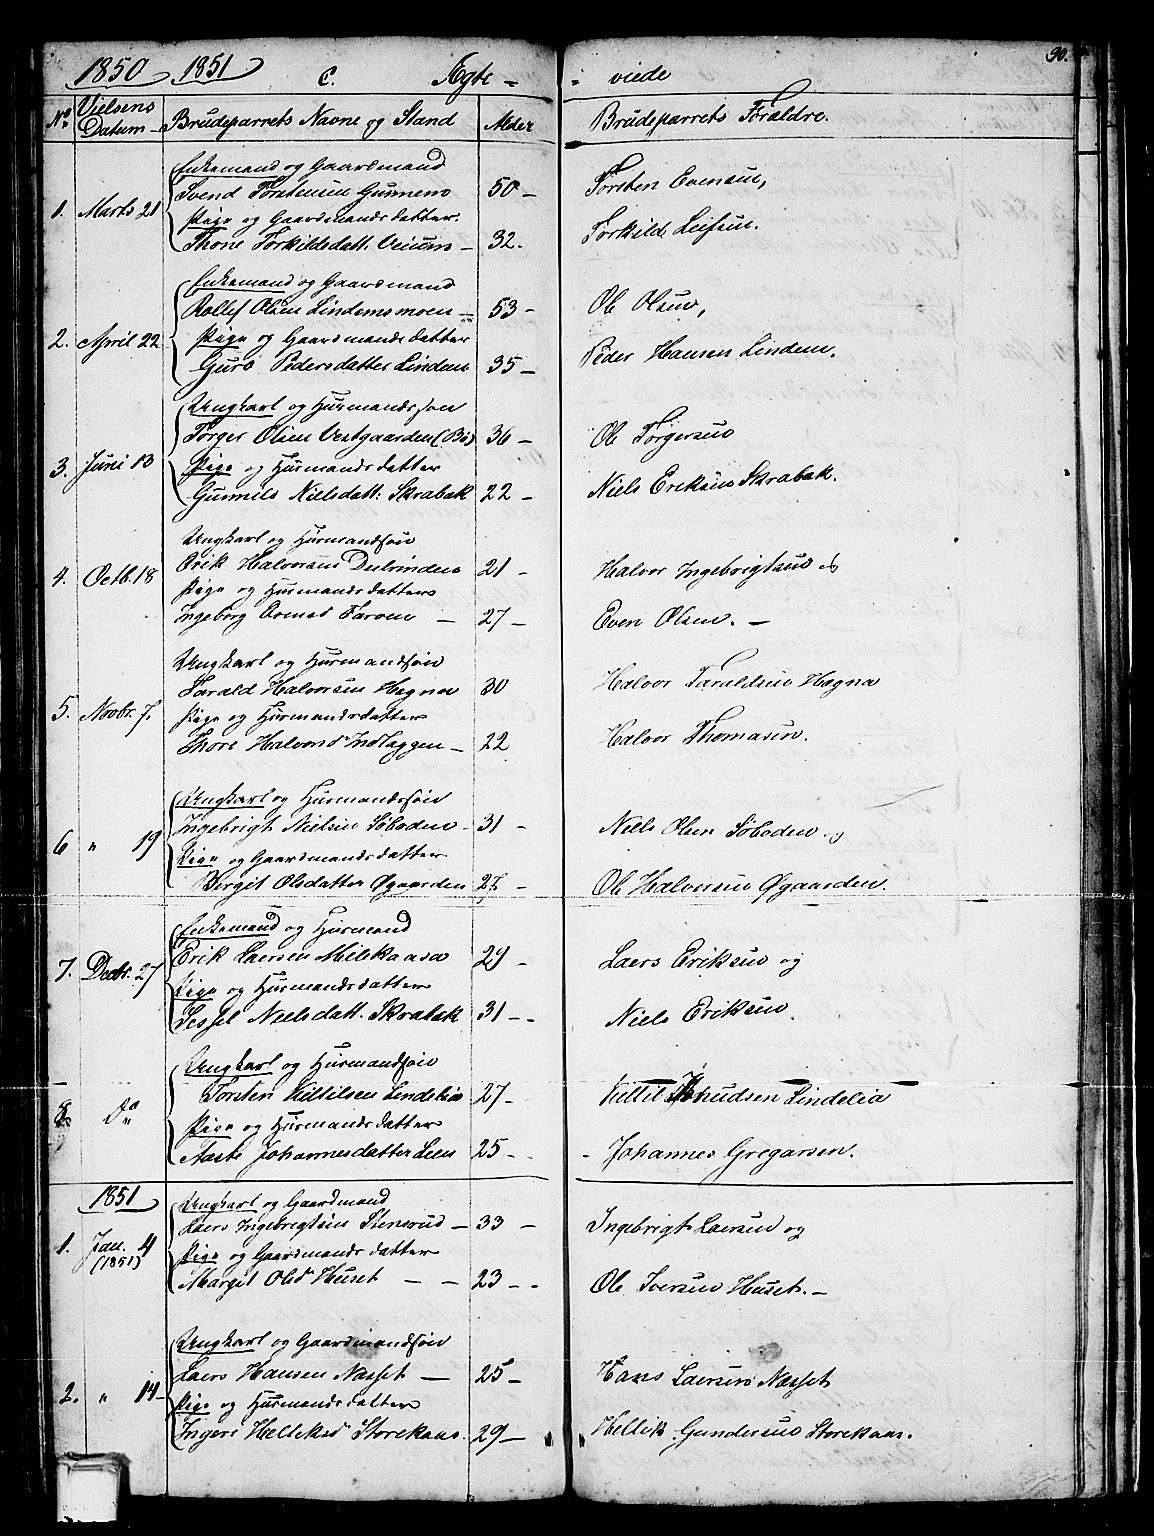 1850 1851 C. Ægte - viede 90.
No Vielsens Datum Brudeparrets Navne og Stand Alder Brudeparrets Forældre.
Enkemand og Gaardmand
Svend Torstensen Gunnem 50 - Torsten Evensen,
1. Marts 21 Pige og Gaardmandsdatter.
Thone Torkildsdatt. Veium - 32. Torkild Leifsen.
Enkemand og Gaardmand
Rollef Olsen Lindemsmoen - 53 - Ole Olsen,
2. April 22 Pige og Gaardmandsdatter
Guro Pedersdatter Lindem 35 - Peder Hansen Lindem.
Ungkarl og Huusmandssøn
Torger Olsen Vestgaarden (Bø) 36 - Ole Torgersen
3. Juni 13 Pige og Huusmandsdatter
Gunnild Nielsdatt: Skrabak 22 - Niels Eriksen Skrabak.
Ungkarl og Huusmandsøn
Erik Halvorsen 21 - Halvor Ingebrigtsen &
4. Octb. 18 Pige og Huusmandsdatter
Ingeborg Evensd Tarven - 27 - Even Olsen. -
Ungkarl og Huusmandsøn
Tarald Halvorsen Hægna 30 Halvor Taraldsen Hægna
5. Novbr. 7. Pige og Huusmandsdatter
Thore Halvorsd Indlaggen - 22 Halvor Thomasen.
Ungkarl og Huusmandssøn
Ingebrigt Nielsen Søboden - 31 - Niels Olsen Søboden og
6 " 19 Pige og Gaardmandsdatter
Bergit Olsdatter Øgaarden 27. - Ole Halvorsen Øgaarden.
Enkemand og Huusmand
Erik Laersen Melekaasa 29 - Laers Eriksen og
7. Decbr. 27 Pige og Huusmandsdatter
Sessel Neelsdatt. Skrabak 31 - - Niels Eriksen.
Ungkarl og Huusmandsøn
Torsten Kittilsen Lindelia 27 - Kittil Knudsen Lindelia
8. Do Pige og Huusmandsdatter
Aaste Johannesdatter Leen 25 - - Johannes Gregarsen.
1851 Ungkarl og Gaardmand
Laers Ingebrigtsen Stensrud - 33 - Ingebrigt Laersen og
1. Jan. 4 (1851) Pige og Gaardmandsdatter
Margit Olsd Huset - - 23 - - Ole Iversen Huset. -
Ungkarl og Gaardmandsøn
Laers Hansen Næsset - 25 - Hans Laersen Næsset
2. " 14 - Pige og Huusmandsdatter
Ingeri Helleksd Storekaas. 29 - Hellek Gundersen Storekaas.